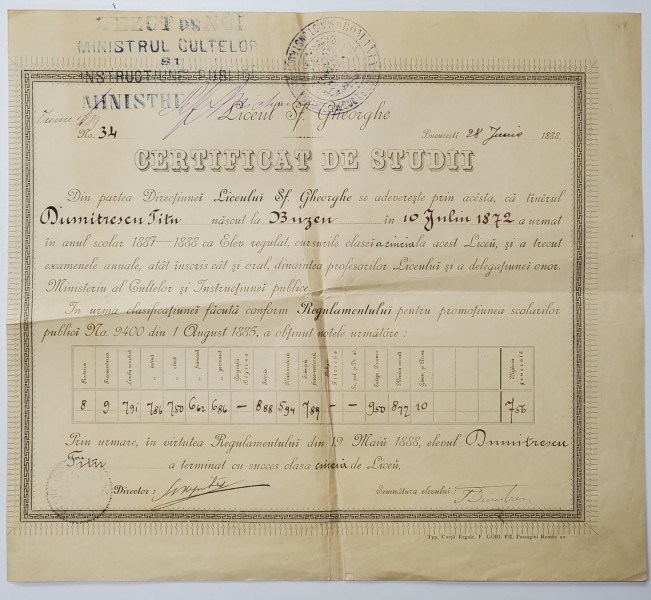 VEZUT DE NOI
MINISTRUL CULTELOR
ȘI
INSTRUCȚIUNEI PUBLICE
MINISTRU
Liceul Sf. Gheorghe
No. 34
Bucuresti 28 Junio 1888.
CERTIFICAT DE STUDII
Din partea Direcțiunei Liceului Sf. Gheorghe se adeverește prin acésta, că tînĕrul
Dumitrescu Titu născut la Buzeu în 10 Juliu 1872 a urmat
în anul scolar 1887—1888 ca Elev regulat, cursurile clasei a cincia la acest Liceŭ, și a trecut
examenele anuale, atât înscris cât și oral, dinaintea profesarilor Liceului și a delegațiunei onor.
Ministeriu al Cultelor și Instrucțiunei publice.
În urma clasificațiunei făcută conform Regulamentului pentru promoțiunea scolarilor
publici No. 9400 din 1 August 1885, a obținut notele următóre :
Purtarea Frecuentarea Limba română " latină " elină " franceză " germană Geografia Religiunea Istoria Matematicele Filosofia Muzica vocală Gimn. și Arme Media generală
8 9 791 786 750 662 686 — 888 594 789 — — 950 872 10 756
Prin urmare, în virtutea Regulamentului din 19 Maiŭ 1888, elevul Dumitrescu
Titu a terminat cu succes clasa cincia de Liceŭ.
Director : Semnătura elevului :
Typ. Curții Regale, F. GÖBL FII, Passagiul Român